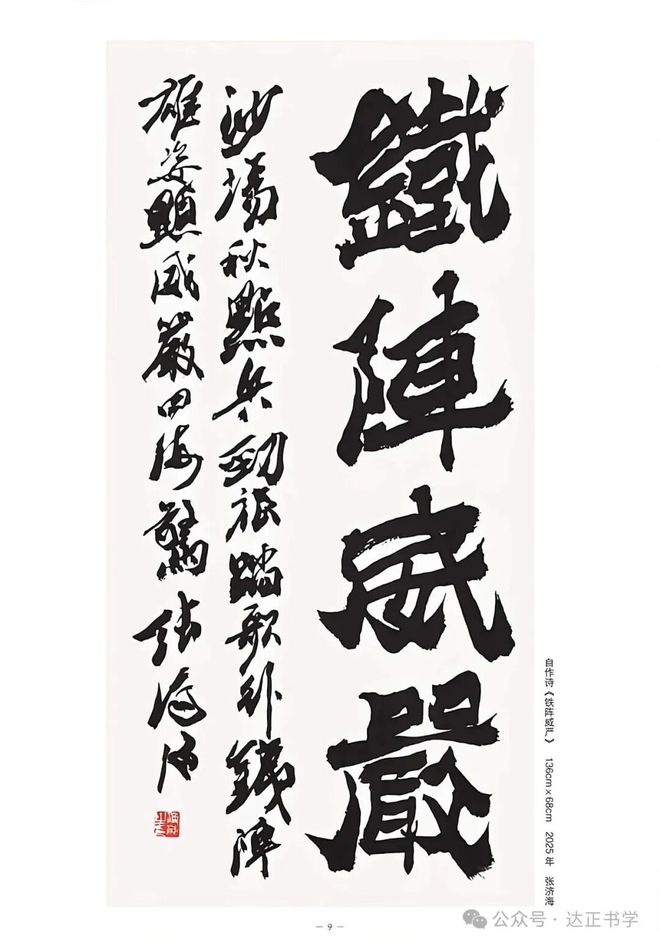 鐵陣威嚴
沙場秋點兵勁旅踏歌行鐵陣
雄姿顯威嚴四海驚 张济海
自作诗《铁阵威严》 136cm×68cm 2025年 张济海
— 9 —
公众号 · 达正书学